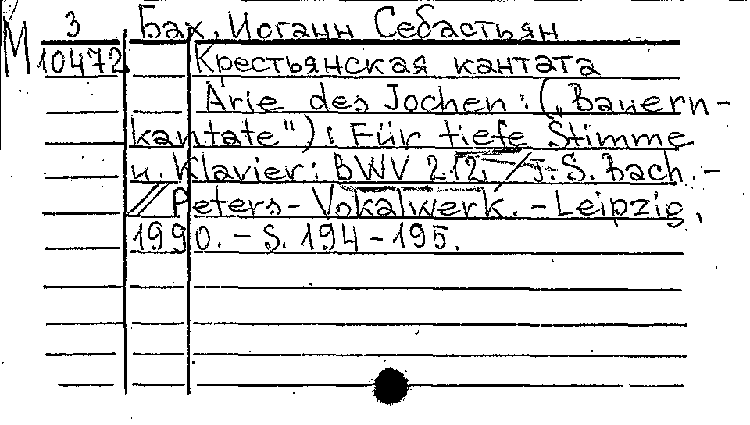 М 3 Бах, Иоганн Себастьян
10472 Крестьянская кантата
Arie des Jochen: („Bauern-
kantate"): Für tiefe Stimme
u. Klavier: BWV 212 / J. S. Bach. -
// Peters - Vokalwerk. - Leipzig,
1990. - S. 194-195.